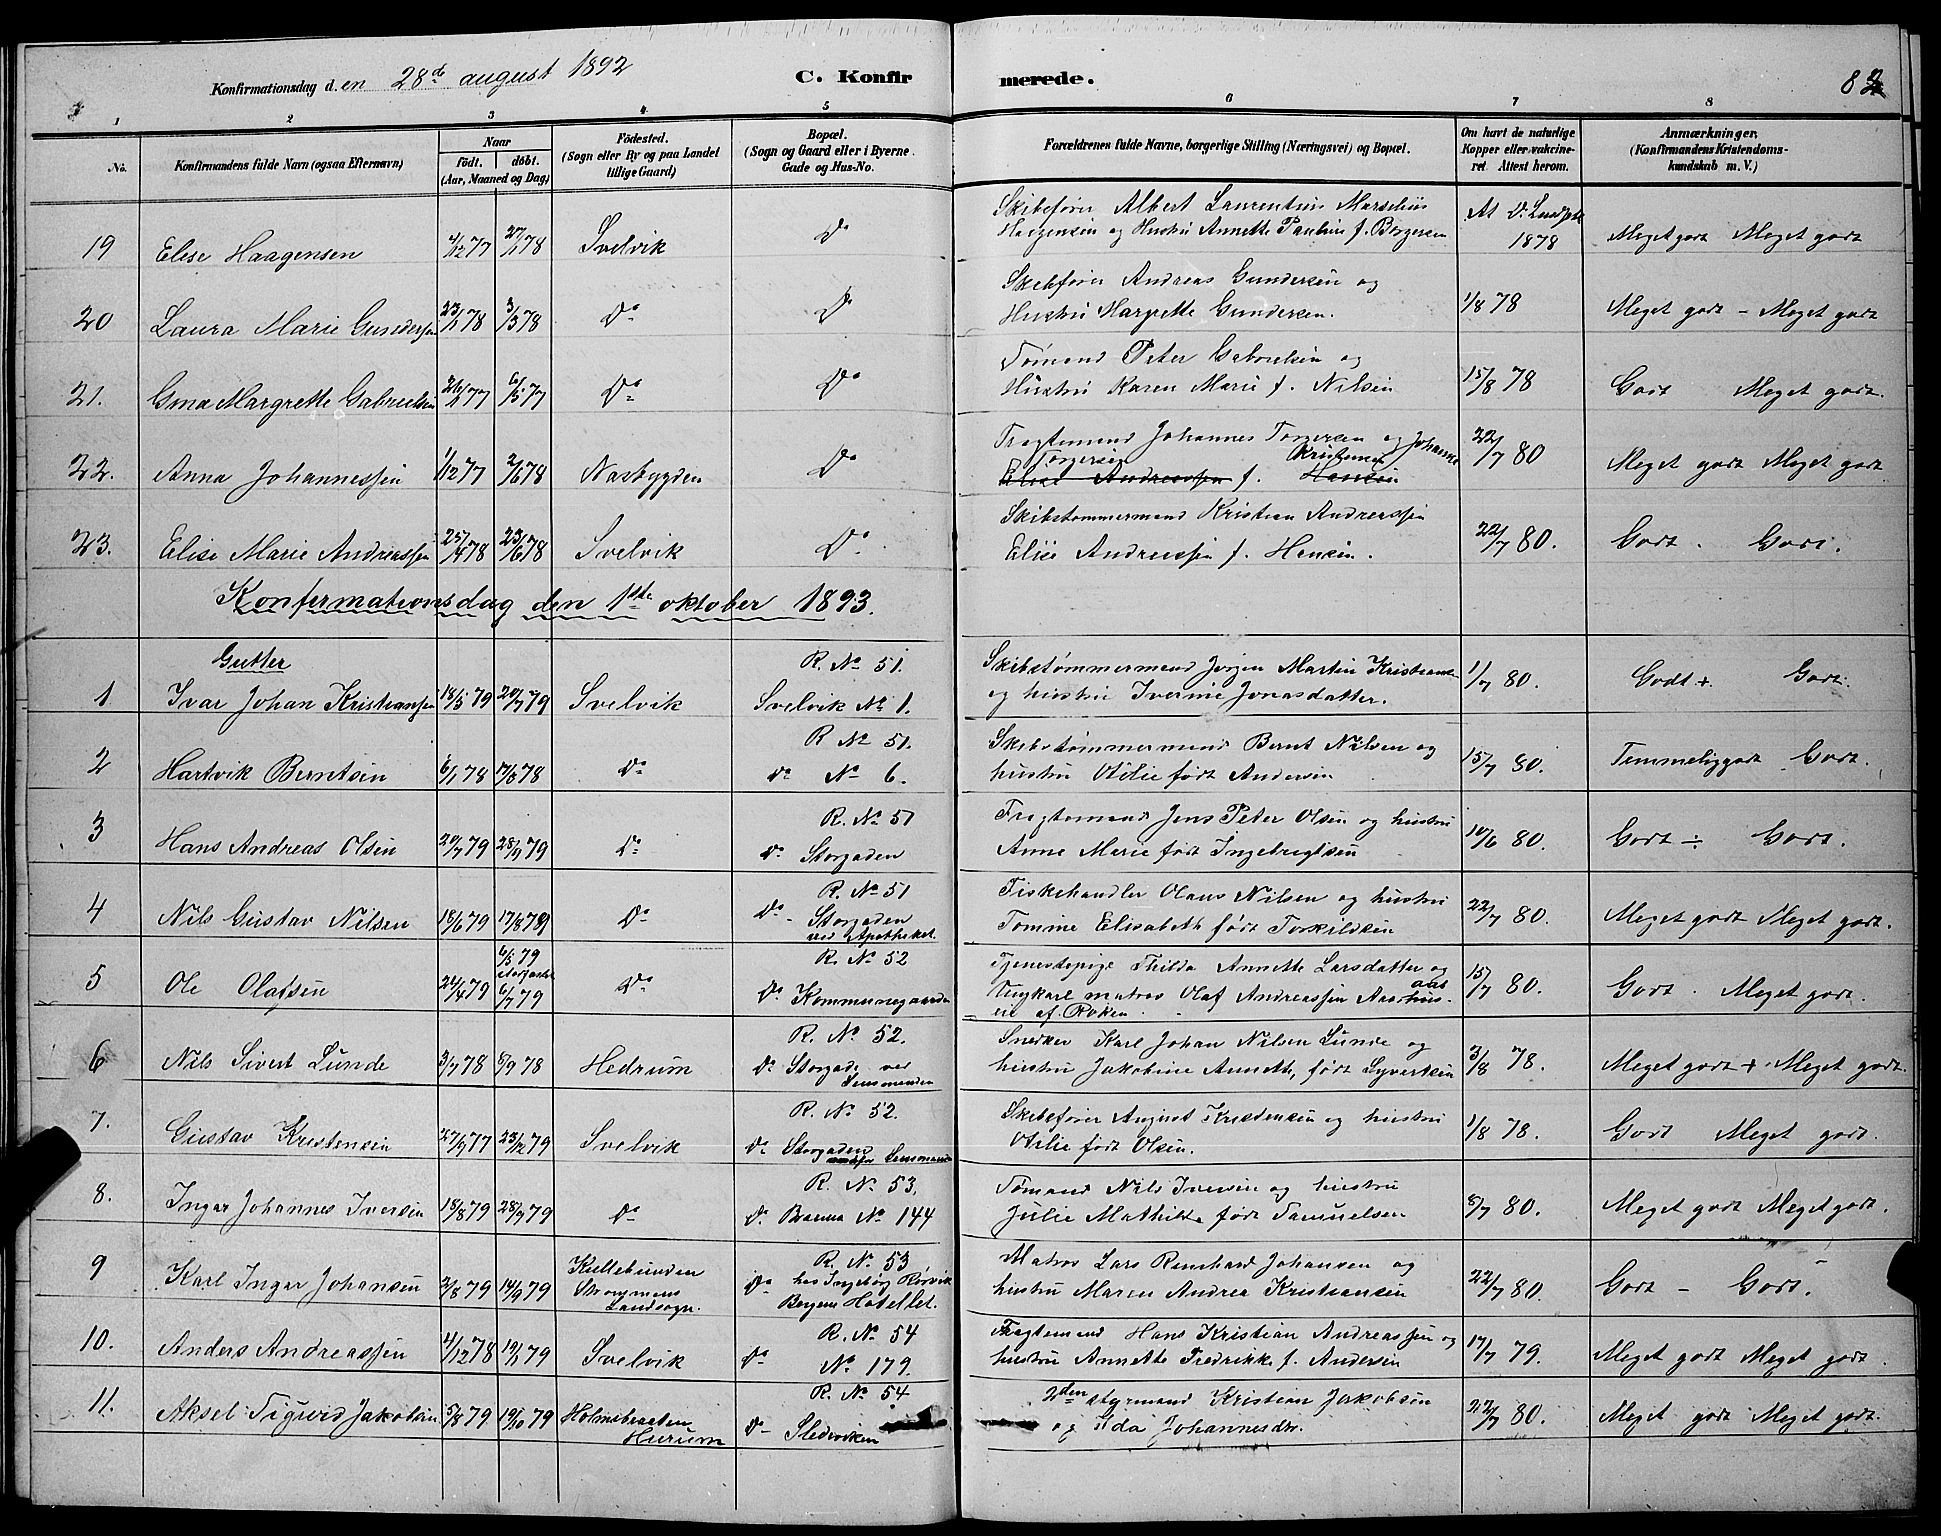 Konfirmationsdag den 28de august 1892 C. Konfirmerede. 82
1 2 3 4 5 6 7 8
No. Konfirmandens fulde Navn (ogsaa Efternavn) Naar født. døbt. (Aar, Maaned og Dag) Fødested. (Sogn eller By og paa Landet tillige Gaard) Bopæl. (Sogn og Gaard eller i Byerne Gade og Hus-No. Forældrenes fulde Navne, borgerlige Stilling (Næringsvei) og Bopæl. Om havt de naturlige Kopper eller vakcineret Attest herom. Anmærkninger. (Konfirmandens Kristendomskundskab m. V.)
Skibsfører Albert Laurentius Marselius
19 Elise Haagensen 4/12 77 27/1 78 Svelvik Do Haagensen og Hustru Annette Pauline f. Børgersen 1878 Meget godt Meget godt
Skibsfører Andreas Gundersen og
20 Laura Marie Gundersen 23/1 78 3/3 78 Do Do Hustru Margrette Gundersen. 1/8 78 Meget godt - Meget godt
Sømand Peter Gabrielsen og
21. Gina Margrette Gabrielsen 77 6/5 77 Do Do Hustru Karen Marie f. Nilsen 15/8 78 Godt Meget godt.
Fragtemand Johannes Torgersen og Johanne
Torgersen Kristensen
22. Anna Johannessen 1/12 77 2/6 78 Nasbygden Do Elise Andreassen f. Hansen 22/7 80 Meget godt Meget godt
Skibstømmermand Kristian Andreassen
23. Elise Marie Andreassen 25/4 78 23/6 78 Svelvik Do Elise Andreassen f. Hansen. 22/7 80. Godt. Godt.
Konfirmationsdag den 1ste oktober 1893.
Gutter R. No 51. Skibstømmermand Jørgen Martin Kristiansen
1 Ivar Johan Kristiansen 18/5 79 20/7 79 Svelvik Svelvik No 1. og hustru Iverine Jonasdatter. 1/7 80. Godt +. Godt.
R No 51. Skibstømmermand Bernt Nilsen og
2 Hartvik Berntsen 6/1 78 17/3 78 Do Do No 6. hustru Otilie født Andersen 15/7 80. Temmelig godt Godt.
R. No 51 Fragtemand Jens Peter Olsen og hustru
3 Hans Andreas Olsen 20/7 79 28/9 79 Do Do Storgaden Anne Marie født Ingebrigtsen 10/6 80. Godt ÷ Godt.
R. No 51 Fiskehandler Olaus Nilsen og hustru
4 Nils Gustav Nilsen 18/6 79 17/8 79 Do Do Storgaden
ved Apotheket. Tomine Elisabeth født Torkildsen 22/7 80. Meget godt Meget godt.
6/5 79 R. No 52 Tjenestepige Thilda Annette Larsdatter og
5 Ole Olafsen 24/4 79 6/7 79 Do Do Kommunegaarden Ungkarl matros Olaf Andreassen Aashus- 15/7 80. Godt. Meget godt.
en af Røken.
R. No 52. Snedker Karl Johan Nilsen Lunde og
6 Nils Sivert Lunde 3/7 78 8/9 78 Hedrum Do Storgade ved
Lensmanden hustru Jakobine Annette, født Syvertsen 3/8 78. Meget godt + Meget godt.
R. No 52. Skibsfører August Kristensen og hustru
7. Gustav Kristensen 27/9 77 23/12 79 Svelvik Do Storgaden
Lensmanden Otilie født Olsen. 1/8 78. Godt Meget godt.
R. No 53. Sømand Nils Iversen og hustru
8. Ingar Johannes Iversen 18/8 79 28/9 79 Do Do Banna No 144 Julie Mathilde født Samuelsen 8/7 80. Meget godt Meget godt.
Kullebunden R. No 53 Matros Lars Reinhard Johansen og
9 Karl Ingar Johansen 2/8 79 14/9 79 Strømmens Do hos Ingebøg Rørvik hustru Maren Andrea Kristiansen 22/7 80. Godt - Godt.
Landsogn. Bergens Hotellet.
R. No 54 Fragtemand Hans Kristian Andreassen og
10. Anders Andreassen 4/12 78 19/1 79 Svelvik Do No 179. hustru Annette Fredrikke f. Andersen 17/7 79. Meget godt Meget godt.
R. No 54 2den styrmand Kristian Jakobsen
11. Aksel Sigurd Jakobsen 5/8 79 19/10 79 Holmsbraaten
Hurum Do Sledviken og Ida Johannesdtr. 22/7 80. Meget godt Meget godt.